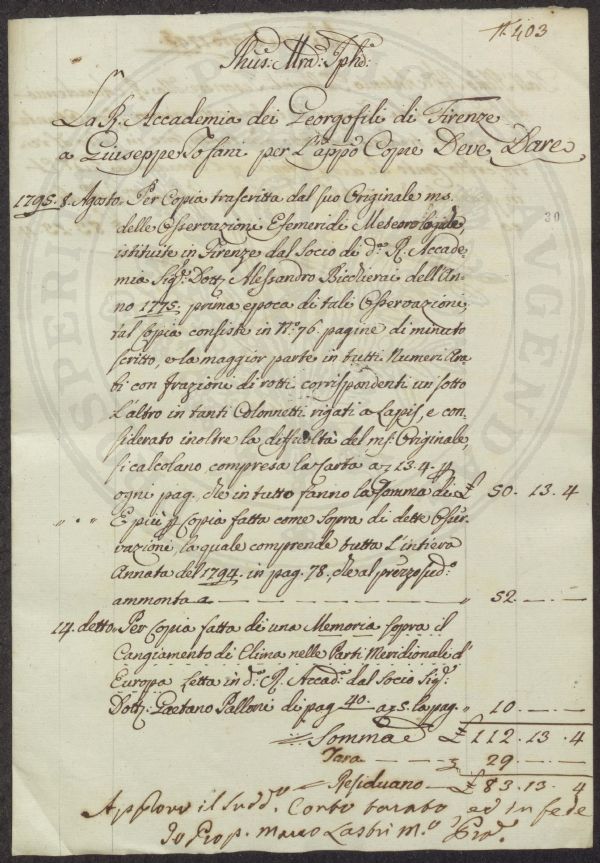 N. 403
Jhus: Mra: Jph:
La R. Accademia dei Georgofili di Firenze
a Giuseppe Tofani per L'appo Copie Deve Dare
1795. 8. Agosto. Per Copia trascritta dal suo Originale ms.
30
delle Osservazioni Efemeridi Meteorologiche,
istituite in Firenze dal Socio di da. R. Accade-
mia Sigr. Dottr. Alessandro Bicchierai dell'An-
no 1775, prima epoca di tali Osservazioni,
tal Copia consiste in No. 76. pagine di minuto
scritto, e la maggior parte in tutti Numeri Ara-
bi con frazione di rotti corrispondenti un sotto
L'altro in tanti Colonnetti rigati a Lapis, e con-
siderato inoltre la difficoltà del ms. Originale,
si calcolano compresa la Carta a 13.4
ogni pag. che in tutto fanno la Somma di £ 50. 13. 4
" . " E più p Copia fatta come sopra di dette Osser-
vazioni, la quale comprende tutta L'intiera
Annata del 1794. in pag. 78. che al prezzo sudo.
ammonta a " 52. — —
14. detto. Per Copia fatta di una Memoria sopra il
Cangiamento di Clima nelle Parti Meridionale d'
Europa Letta in da. R. Accada. dal Socio Sigr.
Dottr. Gaetano Palloni di pag. 40. a p. 5. la pag. " 10. — —
Somma £ 112. 13. 4
Tara 29 — —
Residuano £ 83. 13. 4
Approvo il sudd. Conto tarato ed in fede
Io Prop. Marco Lastri m.o Pro.
PROSPERITATI PUBLICAE AUGENDAE